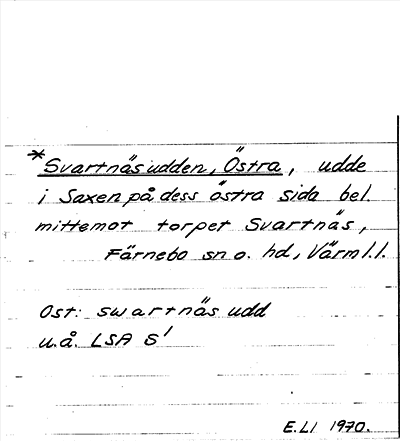 *Svartnäsudden, Östra, udde
i Saxen på dess östra sida bel.
mittemot torpet Svartnäs,
Färnebo sn o. hd, Värml.l.
Ost: swartnäs udd
u.å. LSA S'
E.LI 1970.